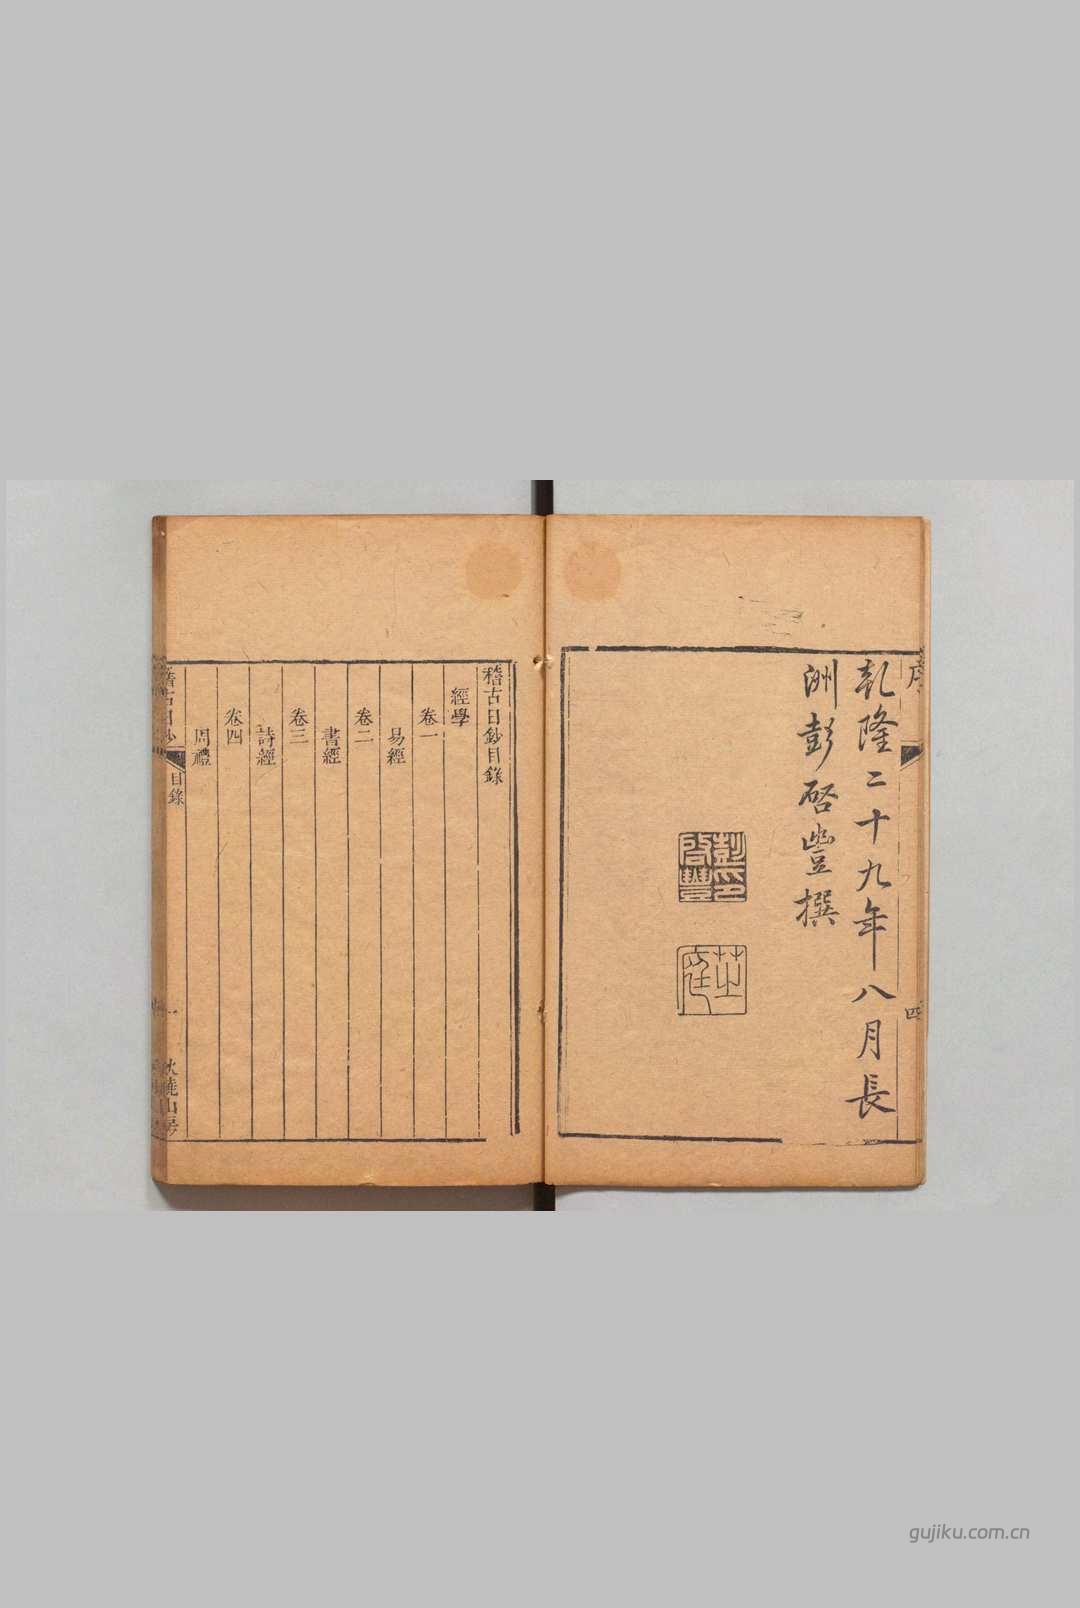 序
四
乾隆二十九年八月長
洲彭啓豐撰
彭啓豐印
芝庭
稽古日鈔目錄
經學
卷一
易經
卷二
書經
卷三
詩經
卷四
周禮
稽古日鈔
目錄
一
秋曉山房
gujiku.com.cn